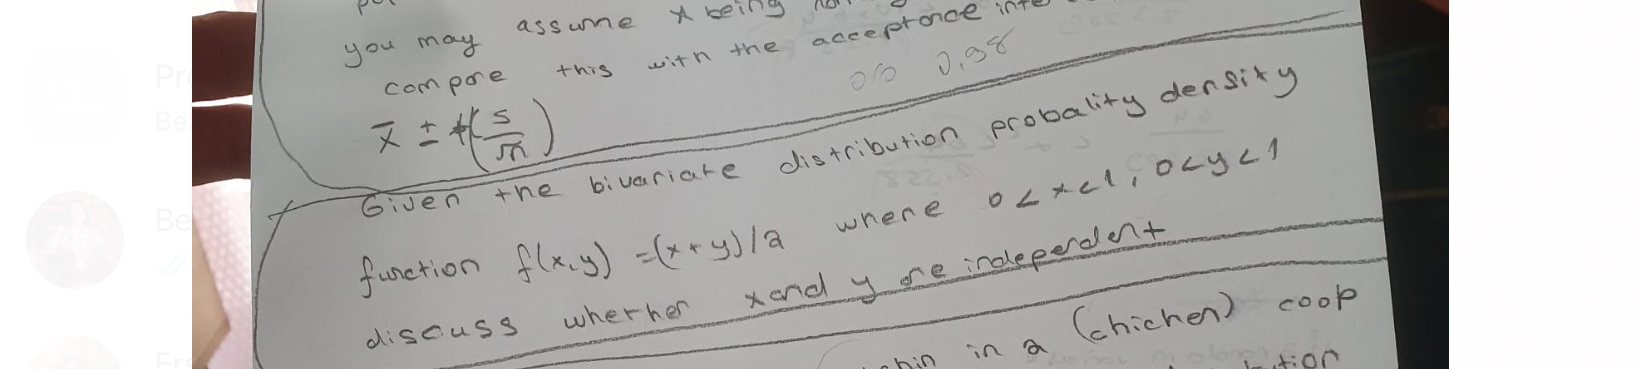 you may assume x being
compare this with the acceptance inte
x̄ ± t(s/√n)
010 0,98
Given the bivariate distribution probality density
function f(x,y) =(x+y)/2 where 0<x<1, 0<y<1
discuss whether x and y are independent
in a (chicken) coop